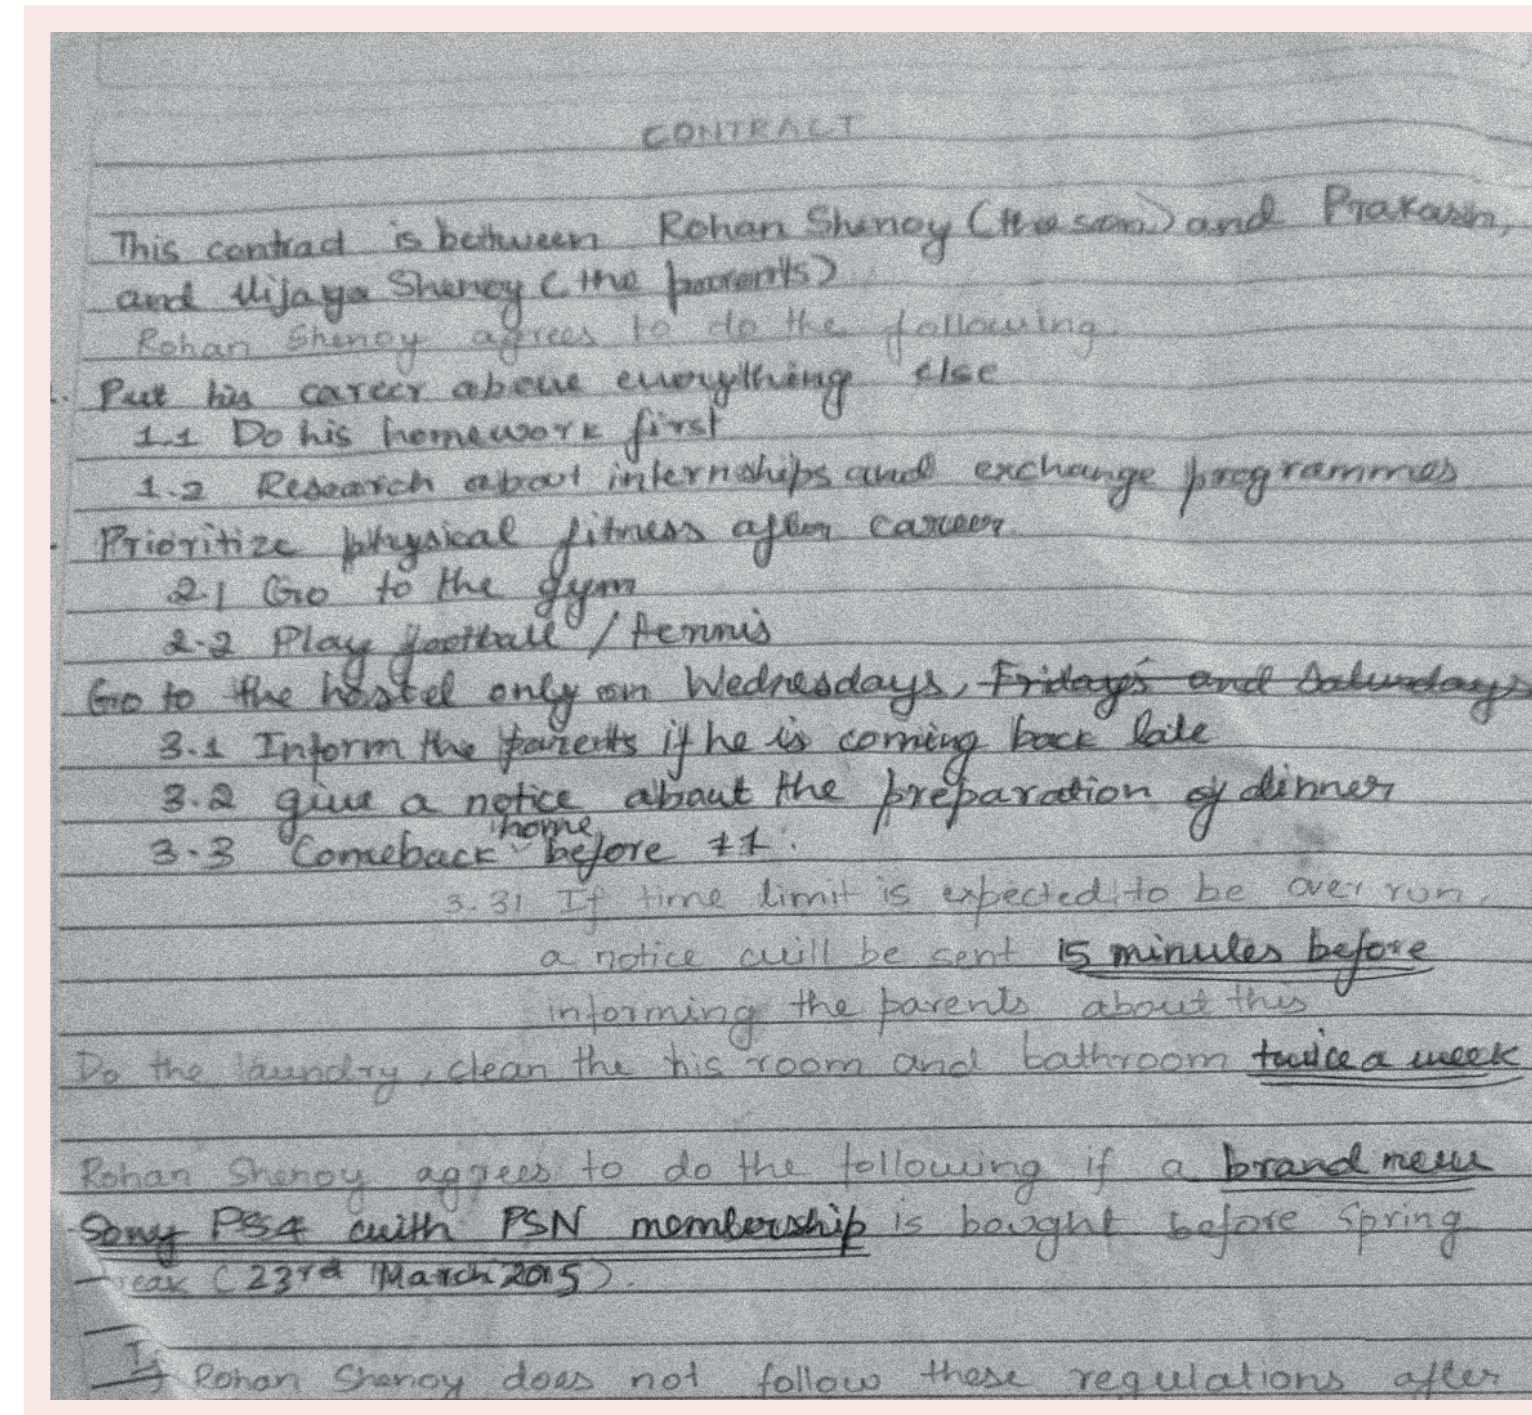 CONTRACT
This contract is between Rohan Shenoy (the son) and Prakash,
and Vijaya Shenoy (the parents)
Rohan Shenoy agrees to do the following
Put his career above everything else
1.1 Do his homework first
1.2 Research about internships and exchange programmes
Prioritize physical fitness after career
2.1 Go to the gym
2.2 Play football / tennis
Go to the hostel only on Wednesdays, Fridays and Saturdays
3.1 Inform the parents if he is coming back late
3.2 give a notice about the preparation of dinner
home
3.3 Comeback before 11.
3.31 If time limit is expected to be over run,
a notice will be sent 15 minutes before
informing the parents about this
Do the laundry, clean the his room and bathroom twice a week
Rohan Shenoy agrees to do the following if a brand new
Sony PS4 with PSN membership is bought before spring
(23rd March 2015).
If Rohan Shenoy does not follow these regulations after